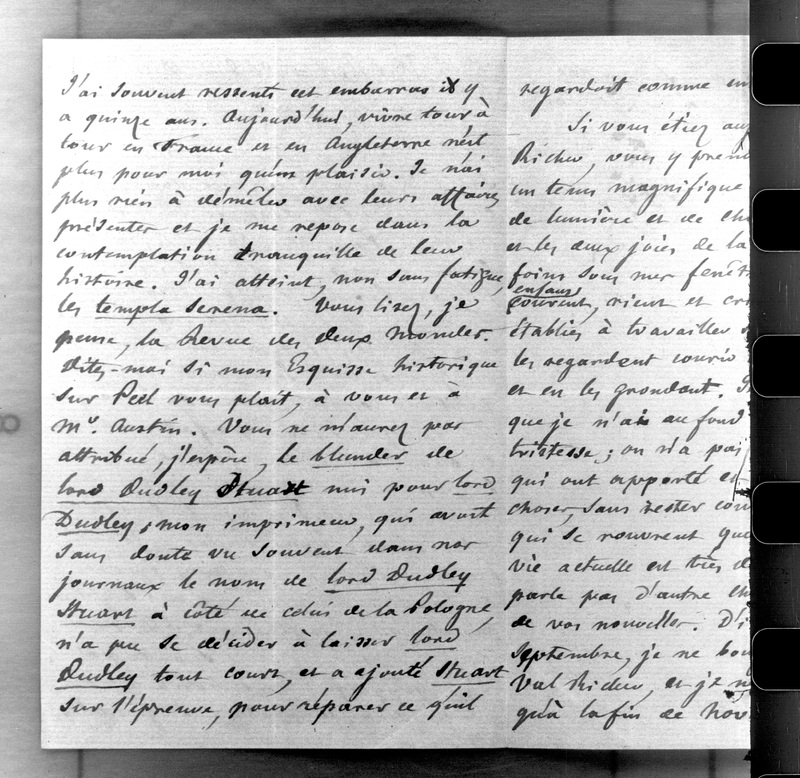 J'ai souvent ressenti cet embarras il y
a quinze ans. Aujourd'hui, vivre tour à
tour en France et en Angleterre n'est
plus pour moi qu'un plaisir. Je n'ai
plus rien à démêler avec leurs affaires
présentes et je me repose dans la
contemplation tranquille de leur
histoire. J'ai atteint, non sans fatigue,
les templa serena. Vous lisez, je
pense, la Revue des deux Mondes.
Dites-moi si mon Esquisse historique
sur Peel vous plait, à vous et à
Mr. Austin. Vous ne m'aurez pas
attribué, j'espère, le blunder de
lord Dudley Stuart mis pour lord
Dudley; mon imprimeur, qui avoit
sans doute vu souvent dans nos
journaux le nom de lord Dudley
Stuart à côté de celui de la Pologne,
n'a pu se décider à laisser lord
Dudley tout court, et a ajouté Stuart
sur l'épreuve, pour réparer ce qu'il
regardoit comme un
Si vous étiez au
Richer, vous y
un tems magnifique
de lumière et de
et les deux joies de la
foins sous mes
enfans
courent, rient et
établies à travailler
les regardent courir
et en les grondant.
que je n'ai au fond
tristesse; on n'a pas
qui ont apporté et
choses, sans rester
qui se rouvrent
vie actuelle est très
parle pas d'autre
de vos nouvelles. D'i
Septembre, je ne
Val Richer, et je
qu'à la fin de Nov